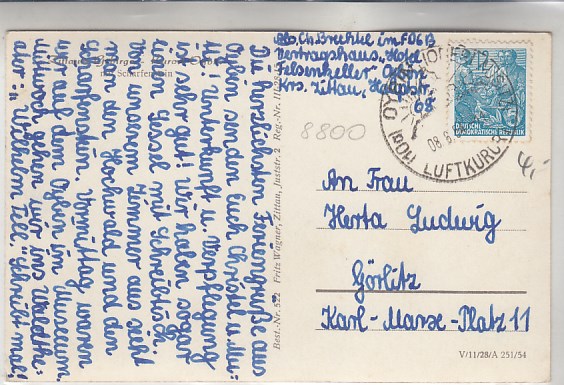 Abs. Ch. Brechtel im FDGB
Vertragshaus, Hotel
Felsenkeller, Oybin
Krs. Zittau, Hauptstr.
68
Die herzlichsten Feriengrüße aus
Oybin senden Euch Christel u. Mu-
tti! Unterkunft u. Verpflegung
ist sehr gut! Wir haben sogar
einen Sessel mit Schreibtisch.
Von unserem Zimmer aus sieht
man den Hochwald und den
Scharfenstein. Vormittag waren
wir auf dem Oybin im Museum.
Mittwoch gehen wir ins Waldth.:
"Wilhelm Tell." Schreibt mal!
mit Scharfenstein
Best.-Nr. 522 Fritz Wagner, Zittau, Juststr. 2 Reg.-Nr.
8800
DEUTSCHE
DEMOKRATISCHE REPUBLIK
OYBIN
LUFTKURORT
08
An Frau
Herta Ludwig
Görlitz
Karl-Marx-Platz 11
V/11/28/A 251/54